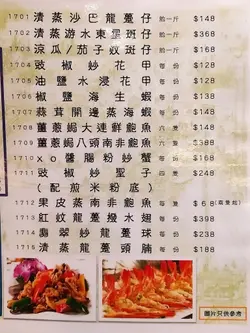 1701 清蒸沙巴龍躉仔 約一斤 $148
1702 清蒸游水東星斑仔 約一斤 $368
1703 涼瓜/茄子炆斑仔 約一斤 $168
1704 豉椒炒花甲 每份 $138
1705 油鹽水浸花甲 每份 $138
1706 椒鹽海生蝦 每份 $138
1707 蒜茸開邊蒸海蝦 每份 $148
1708 薑蔥焗大連鮮鮑魚 六隻 $148
1709 薑蔥焗八頭南非鮑魚 $388
1710 xo醬腸粉炒蟹 每份 $168
1711 豉椒炒聖子 四隻 $248
(配煎米粉底)
1712 果皮蒸南非鮑魚 每隻 $68
1713 紅蚊龍躉撥水翅 每份 $398
1714 翡翠炒龍躉球 每份 $238
1715 清蒸龍躉頭腩 每份 $188
圖片只供參考